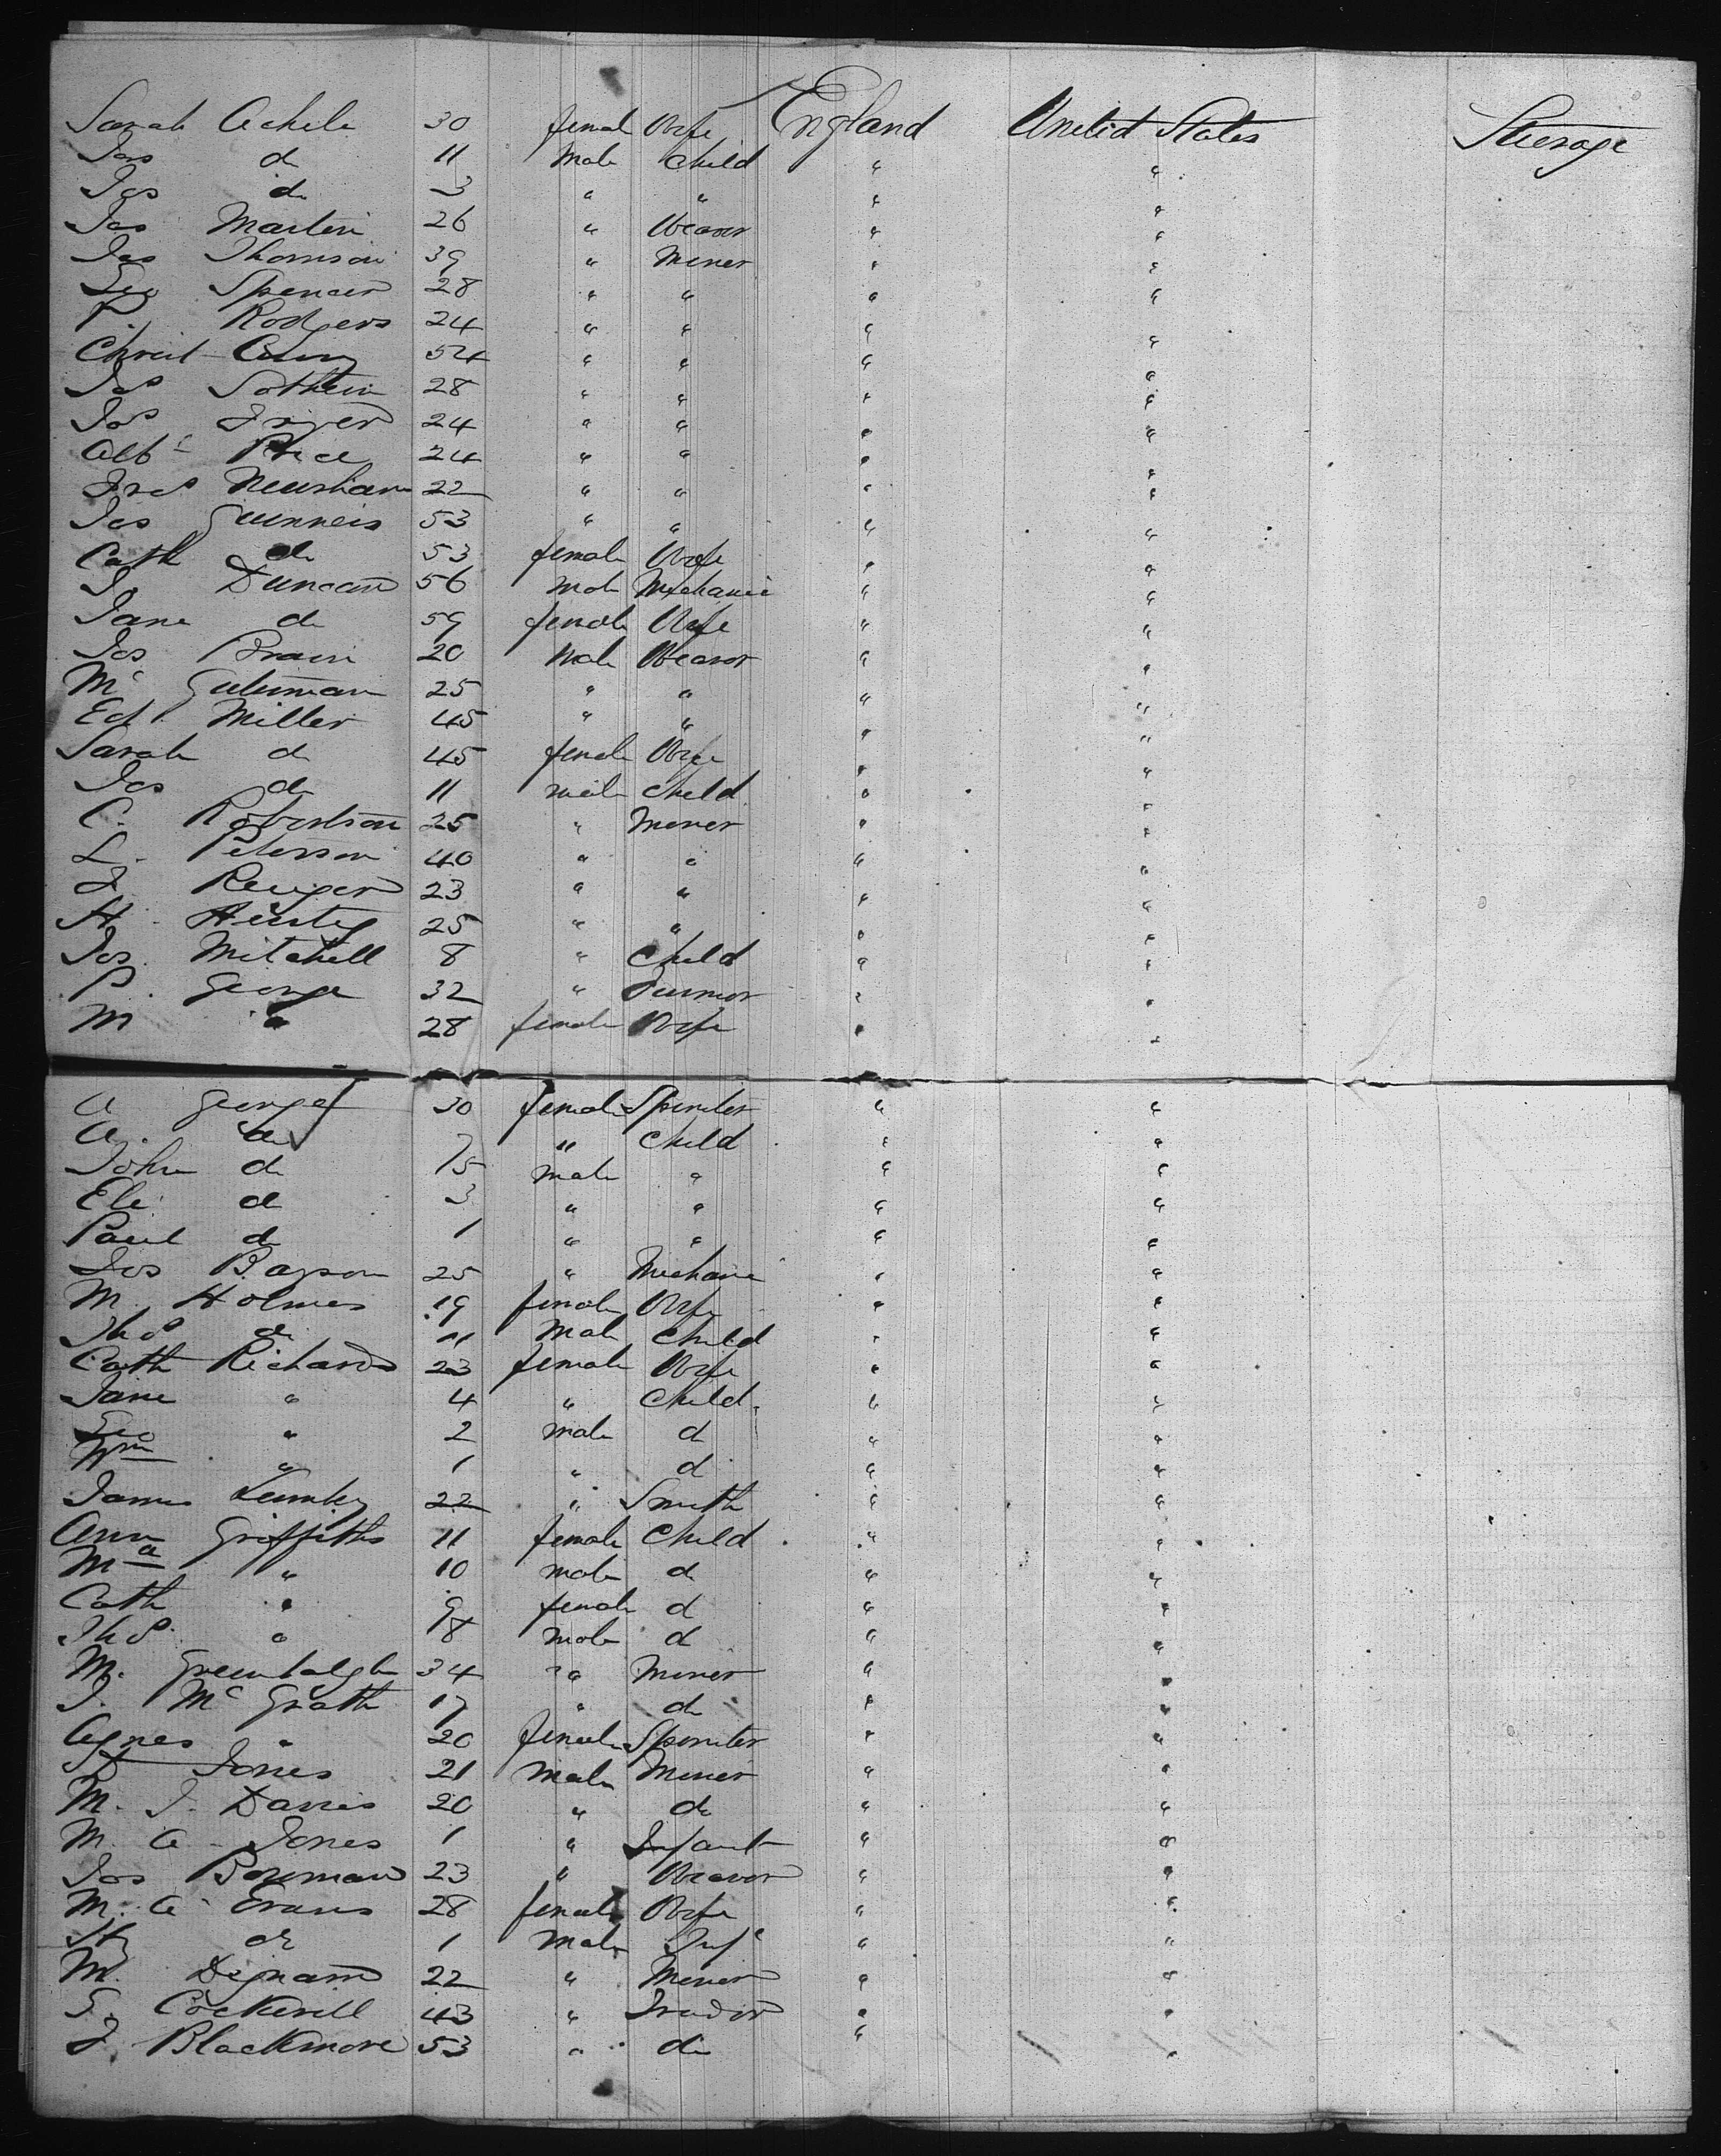 Sarah 30 female Wife England United States Steerage
Jas do 11 male child " "
Jos do 3 " " " "
Jas Martin 26 " Weaver " "
Jas Thomson 39 " Miner " "
Geo Spencer 28 " " " "
P. Rodgers 24 " " " "
54 " " " "
Jas Sothern 28 " " " "
Jos Fryer 24 " " " "
Albt Price 24 " " " "
Newsham 22 " " " "
Jas 53 " " " "
Cath do 53 female Wife " "
J. Duncan 56 male Mechanic " "
Jane do 59 female Wife " "
Jas 20 male Weaver " "
25 " " " "
Ed. Miller 45 " " " "
Sarah do 45 female Wife " "
Jas do 11 male child " "
C. Robertson 25 " Miner " "
L. Peterson 40 " " " "
23 " " " "
H. 25 " " " "
Jas. Mitchell 8 " Child " "
P. George 32 " " "
M " 28 female Wife " "
A George 30 female Spinster " "
A. do 7 " child " "
John do 5 male " " "
Eli do 3 " " " "
Paul do 1 " " " "
Jos 25 " Mechanic " "
M. Holmes 19 female Wife " "
Thos do 11 male child " "
Cath Richards 23 female Wife " "
Jane " 4 " Child. " "
Geo " 2 male d " "
Wm " 1 " d " "
James Lumley 22 " Smith " "
Ann Griffiths 11 female Child " "
" 10 male d " "
Cath " 9 female d " "
Thos. " 8 male d " "
M. Greenhalgh 34 " Miner " "
J. Mc Grath 17 " do " "
Agnes " 20 female Spinster " "
Jones 21 male Miner " "
M. J. Davies 20 " do " "
M. A. Jones 1 " Infant " "
Jos Bowman 23 " Weaver " "
M. A. Evans 28 female Wife " "
Hy do 1 male Inft " "
M. Dignam 22 " Miner " "
G. Cockerill 43 " Trader " "
J. Blackmore 53 " do " "